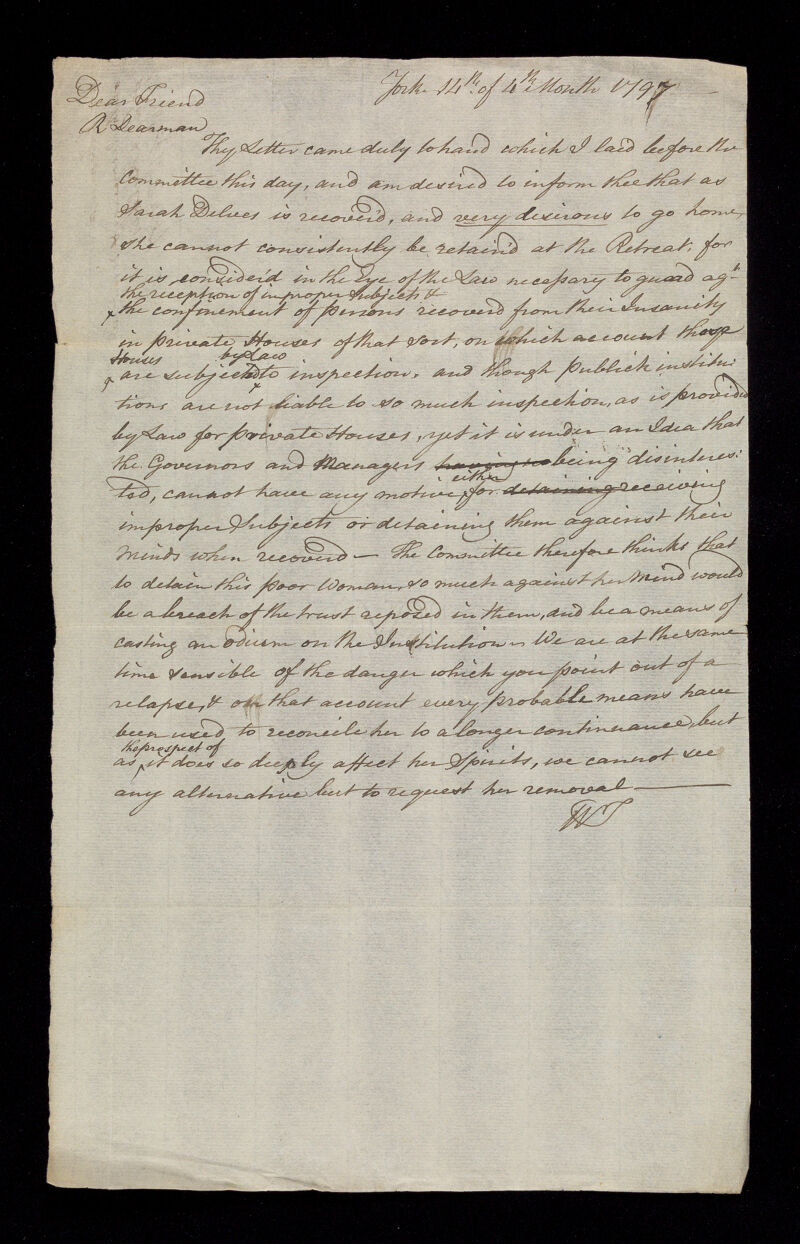 York 14th. of 4th. Month 1797
Dear Friend
R Dearman
Thy Letter came duly to hand which I laid before the
committee this day, and am desired to inform thee that as
Sarah Delves is recoverd, and very desirous to go home,
she cannot consistently be retain'd at the Retreat, for
it is, consider'd in the Eye of the Law necessary to guard agst
the reception of improper Subjects &
the confinement of persons recoverd from their Insanity
in private Houses of that sort, on which account those
Houses by Law
are subjected to inspection, and though Publick institu:
tions are not liable to so much inspection, as is provided
by Law for private Houses, yet it is under an Idea that
the Governors and Managers having no being disinteres:
either
ted, cannot have any motive for detaining receiving
improper Subjects or detaining them against their
minds when recoverd — The Committee therefore thinks that
to detain this poor Woman, so much against her Mind would
be a breach of the trust reposed in them, and be a means of
casting an odium on the Institution — We are at the same
time sensible of the danger which you point out of a
relapse, & on that account every probable means have
been used to reconcile her to a longer continuance, but
the prospect of
as it does so deeply affect her Spirits, we cannot see
any alternative but to request her removal —
WT